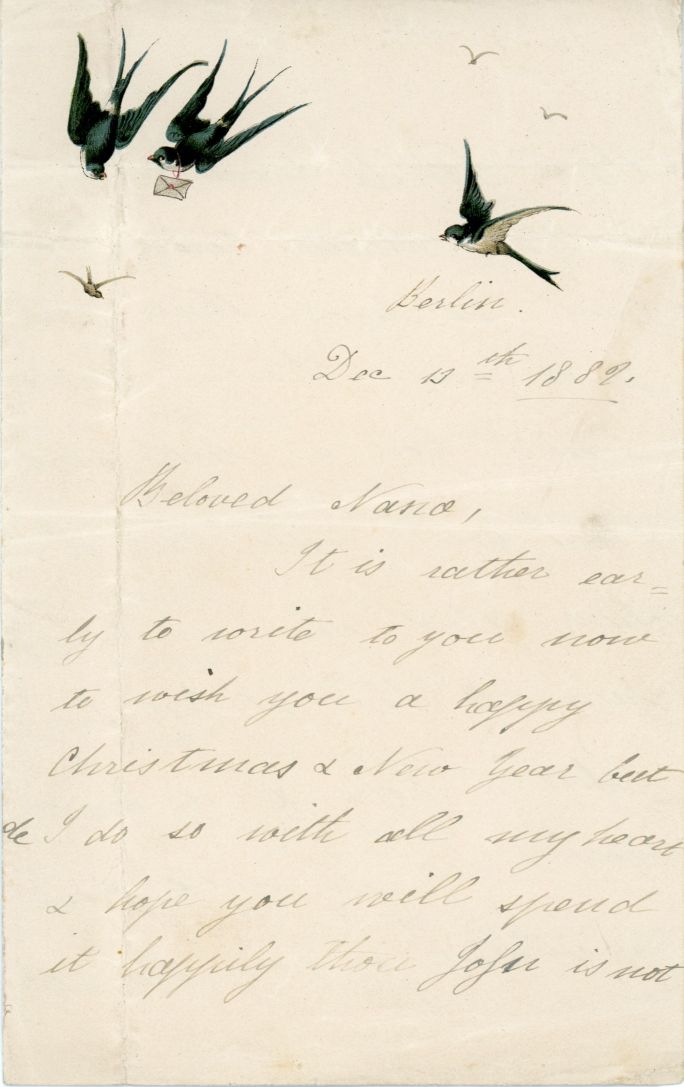 Berlin.
Dec th
Beloved Nana,
It is rather ear=
ly to write to you now
to wish you a happy
Christmas & New Year but
I do so with all my heart
& hope you will spend
it happily thou John is not